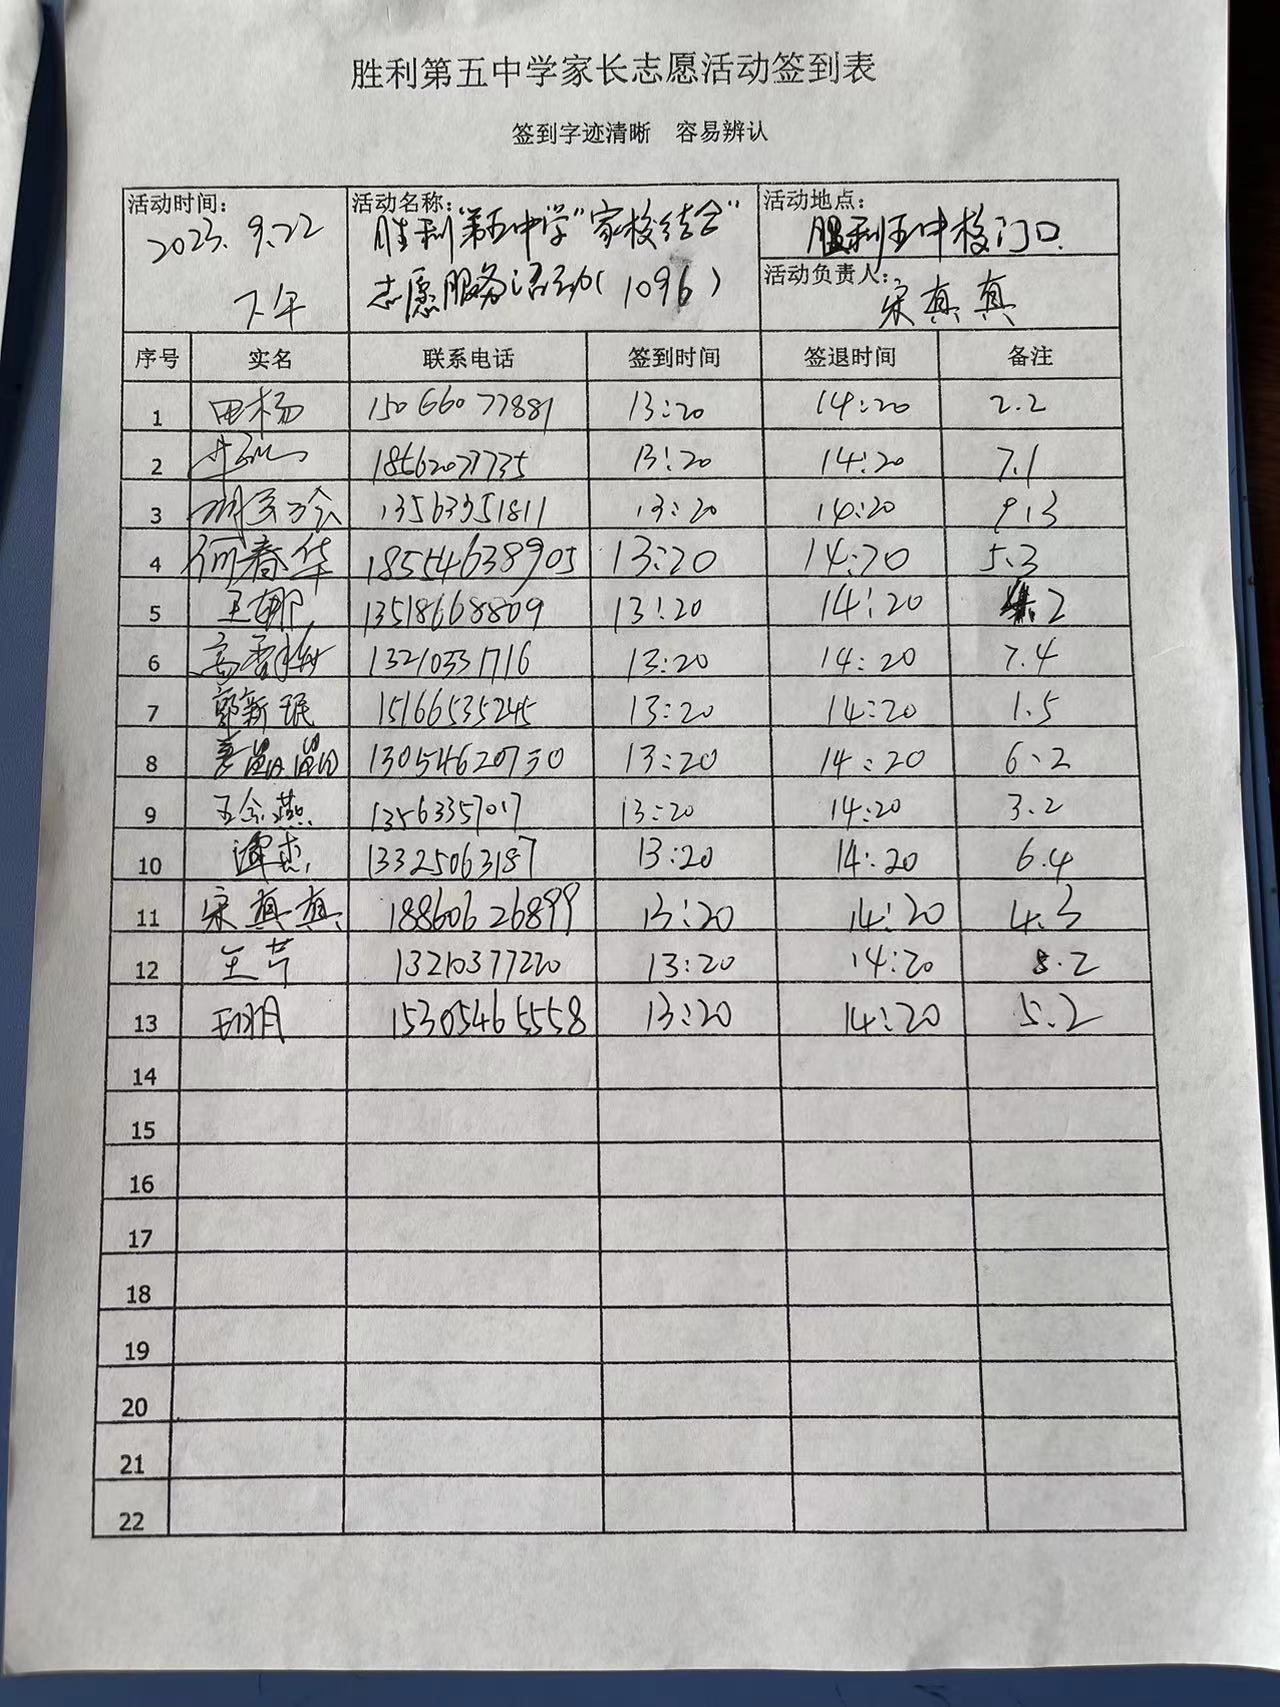 胜利第五中学家长志愿活动签到表
签到字迹清晰 容易辨认
活动时间: 2023.9.22 下午
活动名称: 胜利"第五中学"家校结合"
志愿服务活动(1096)
活动地点: 胜利五中校门口
活动负责人: 宋真真
序号 实名 联系电话 签到时间 签退时间 备注
1 田杨 15066077881 13:20 14:20 2.2
2 18562077735 13:20 14:20 7.1
3 13563351811 13:20 14:20 9.3
4 何春华 18554638905 13:20 14:20 5.3
5 王娜 13518668809 13:20 14:20 .2
6 高 13210331716 13:20 14:20 7.4
7 郭新珉 15166535245 13:20 14:20 1.5
8 13054620730 13:20 14:20 6.2
9 王会燕 13563357017 13:20 14:20 3.2
10 谭杰 13325063187 13:20 14:20 6.4
11 宋真真 18860626899 13:20 14:20 4.3
12 王芹 13210377220 13:20 14:20 8.2
13 15305465558 13:20 14:20 5.2
14
15
16
17
18
19
20
21
22